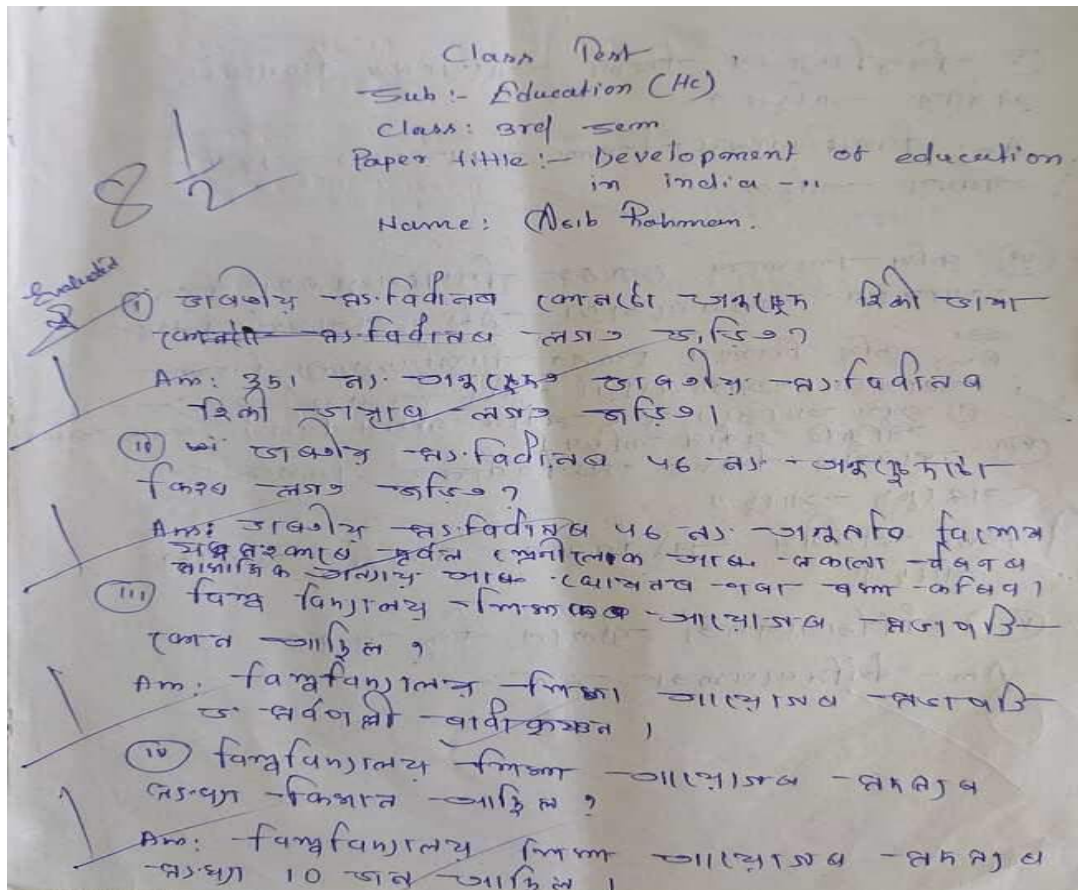 Class Test
Sub :- Education (HC)
Class: 3rd sem
Paper tittle :- Development of education
in india -II
8 1/2
Name: Asib Rahman.
Evaluated
(i) ভাৰতীয় সংবিধানৰ কোনটো অনুচ্ছেদ হিন্দী ভাষা
সংবিধানৰ লগত জড়িত?
Ans: 351 নং অনুচ্ছেদত ভাৰতীয় সংবিধানৰ
হিন্দী ভাষাৰ লগত জড়িত।
(ii) ভাৰতীয় সংবিধানৰ 46 নং অনুচ্ছেদটো
কিহৰ লগত জড়িত?
Ans: ভাৰতীয় সংবিধানৰ 46 নং
দুৰ্বল শ্ৰেণীলোক আৰু সকলো ধৰণৰ
সামাজিক অন্যায় আৰু শোষণৰ পৰা ৰক্ষা কৰিব।
(iii) বিশ্ব বিদ্যালয় শিক্ষা আয়োগৰ সভাপতি
কোন আছিল?
Ans: বিশ্ববিদ্যালয় শিক্ষা আয়োগৰ সভাপতি
ড° সৰ্বপল্লী ৰাধাকৃষ্ণন।
(iv) বিশ্ববিদ্যালয় শিক্ষা আয়োগৰ সদস্যৰ
সংখ্যা কিমান আছিল?
Ans: বিশ্ববিদ্যালয় শিক্ষা আয়োগৰ সদস্যৰ
সংখ্যা 10 জন আছিল।